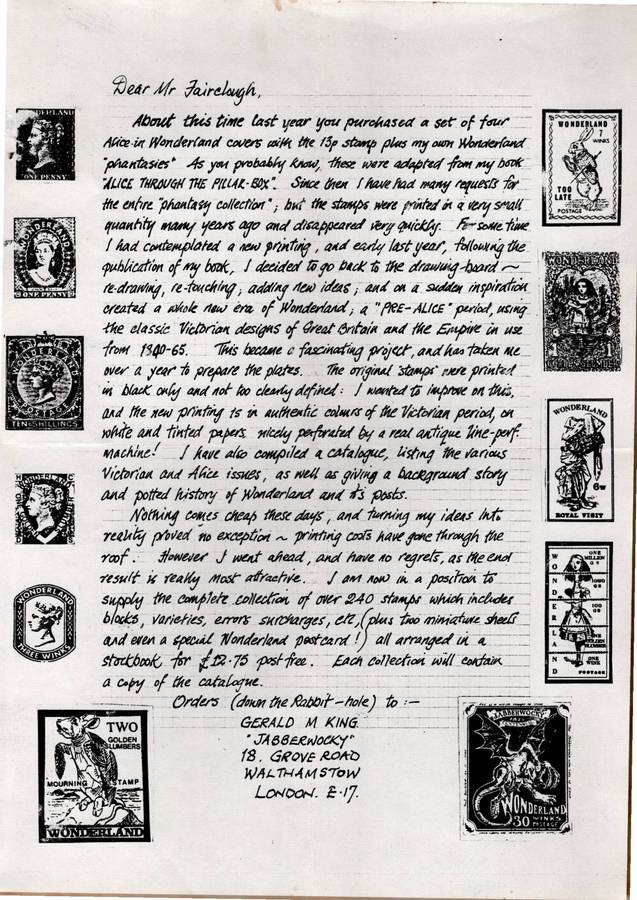 Dear Mr Fairclough,
About this time last year you purchased a set of four
Alice in Wonderland covers with the 13p stamp plus my own Wonderland
"phantasies" As you probably know, these were adapted from my book
"ALICE THROUGH THE PILLAR-BOX". Since then I have had many requests for
the entire "phantasy collection"; but the stamps were printed in a very small
quantity many years ago and disappeared very quickly. For some time
I had contemplated a new printing, and early last year, following the
publication of my book, I decided to go back to the drawing-board ~
re-drawing, re-touching; adding new ideas; and on a sudden inspiration
created a whole new era of Wonderland; a "PRE-ALICE" period, using
the classic Victorian designs of Great Britain and the Empire in use
from 1840-65. This became a fascinating project, and has taken me
over a year to prepare the plates. The original 'stamps' were printed
in black only and not too clearly defined: I wanted to improve on this,
and the new printing is in authentic colours of the Victorian period, on
white and tinted papers nicely perforated by a real antique line-perf.
machine! I have also compiled a catalogue, listing the various
Victorian and Alice issues, as well as giving a background story
and potted history of Wonderland and it's posts.
Nothing comes cheap these days, and turning my ideas into
reality proved no exception ~ printing costs have gone through the
roof. However I went ahead, and have no regrets, as the end
result is really most attractive. I am now in a position to
supply the complete collection of over 240 stamps which includes
blocks, varieties, errors surcharges, etc, (plus two miniature sheets
and even a special Wonderland postcard!) all arranged in a
stockbook for £12.75 post free. Each collection will contain
a copy of the catalogue.
Orders (down the Rabbit-hole) to :-
GERALD M KING.
"JABBERWOCKY"
18. GROVE ROAD
WALTHAMSTOW
LONDON. E-17.
ONE PENNY
WONDERLAND
ONE PENNY
WONDERLAND
POSTAGE
TEN SHILLINGS
WONDERLAND
WONDERLAND
THREE WINKS
TWO
GOLDEN
SLUMBERS
MOURNING STAMP
WONDERLAND
WONDERLAND
7
WINKS
TOO
LATE
POSTAGE
WONDERLAND
WONDERLAND
6w
ROYAL VISIT
WONDERLAND
ONE
1000
100
GOLDEN
SLUMBER
ONE
WINK
POSTAGE
JABBERWOCKY
CENTENNIAL
WONDERLAND
30 WINKS
POSTAGE